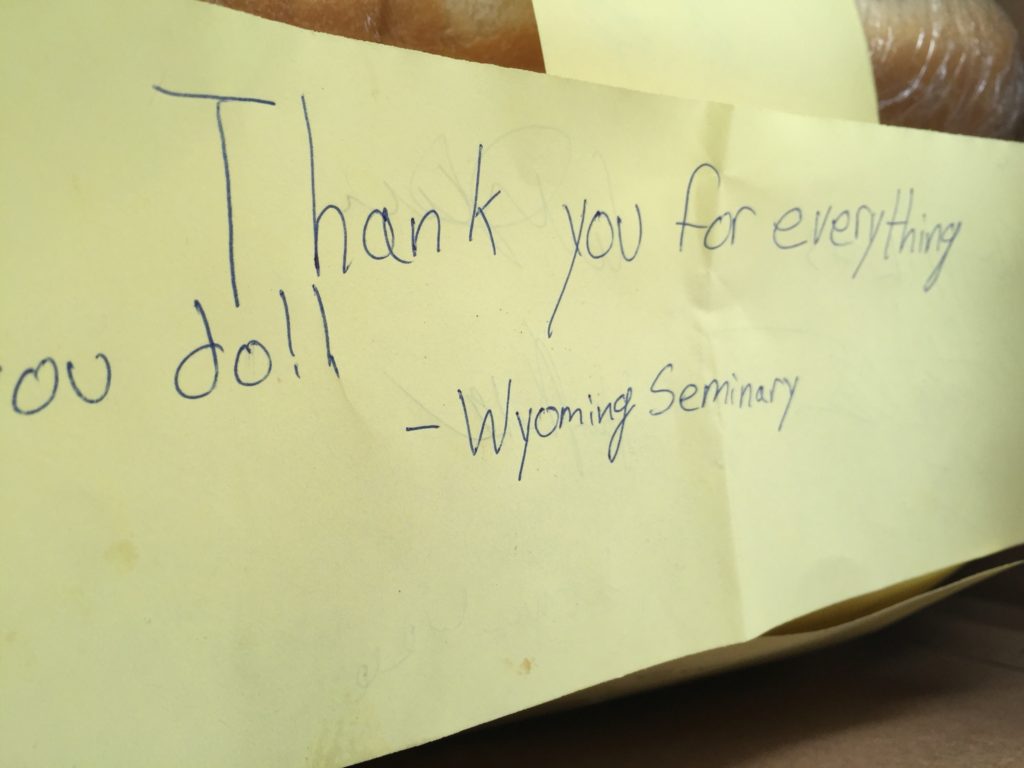 Thank you for everything
you do!!
- Wyoming Seminary